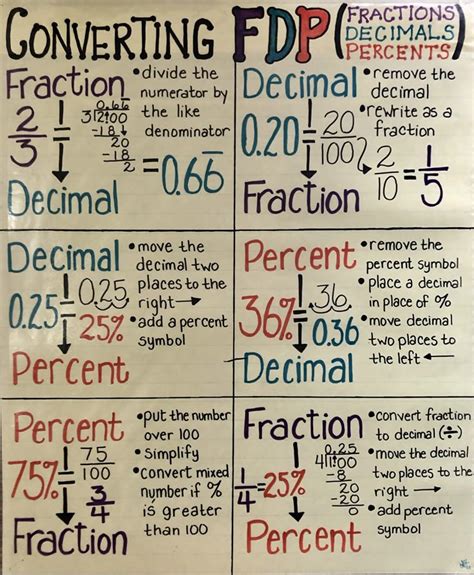 CONVERTING FDP (FRACTIONS DECIMALS PERCENTS)
Fraction
•divide the
numerator by
the like
denominator
2/3 =
0.66
3)2.00
-18
20
-18
2
=0.66
Decimal
Decimal
•remove the
decimal
•rewrite as a
fraction
0.20 = 20/100
2/10 = 1/5
Fraction
Decimal
•move the
decimal two
places to the
right →
•add a percent
symbol
0.25 = 0.25
25%
Percent
Percent
•remove the
percent symbol
•place a decimal
in place of %
•move decimal
two places to
the left ←
36% = 36
0.36
Decimal
Percent
•put the number
over 100
•simplify
•convert mixed
number if %
is greater
than 100
75% = 75/100
3/4
Fraction
Fraction
•convert fraction
to decimal (÷)
•move the decimal
two places to the
right →
•add percent
symbol
1/4 = 25%
0.25
4)1.00
-8
20
-20
0
Percent